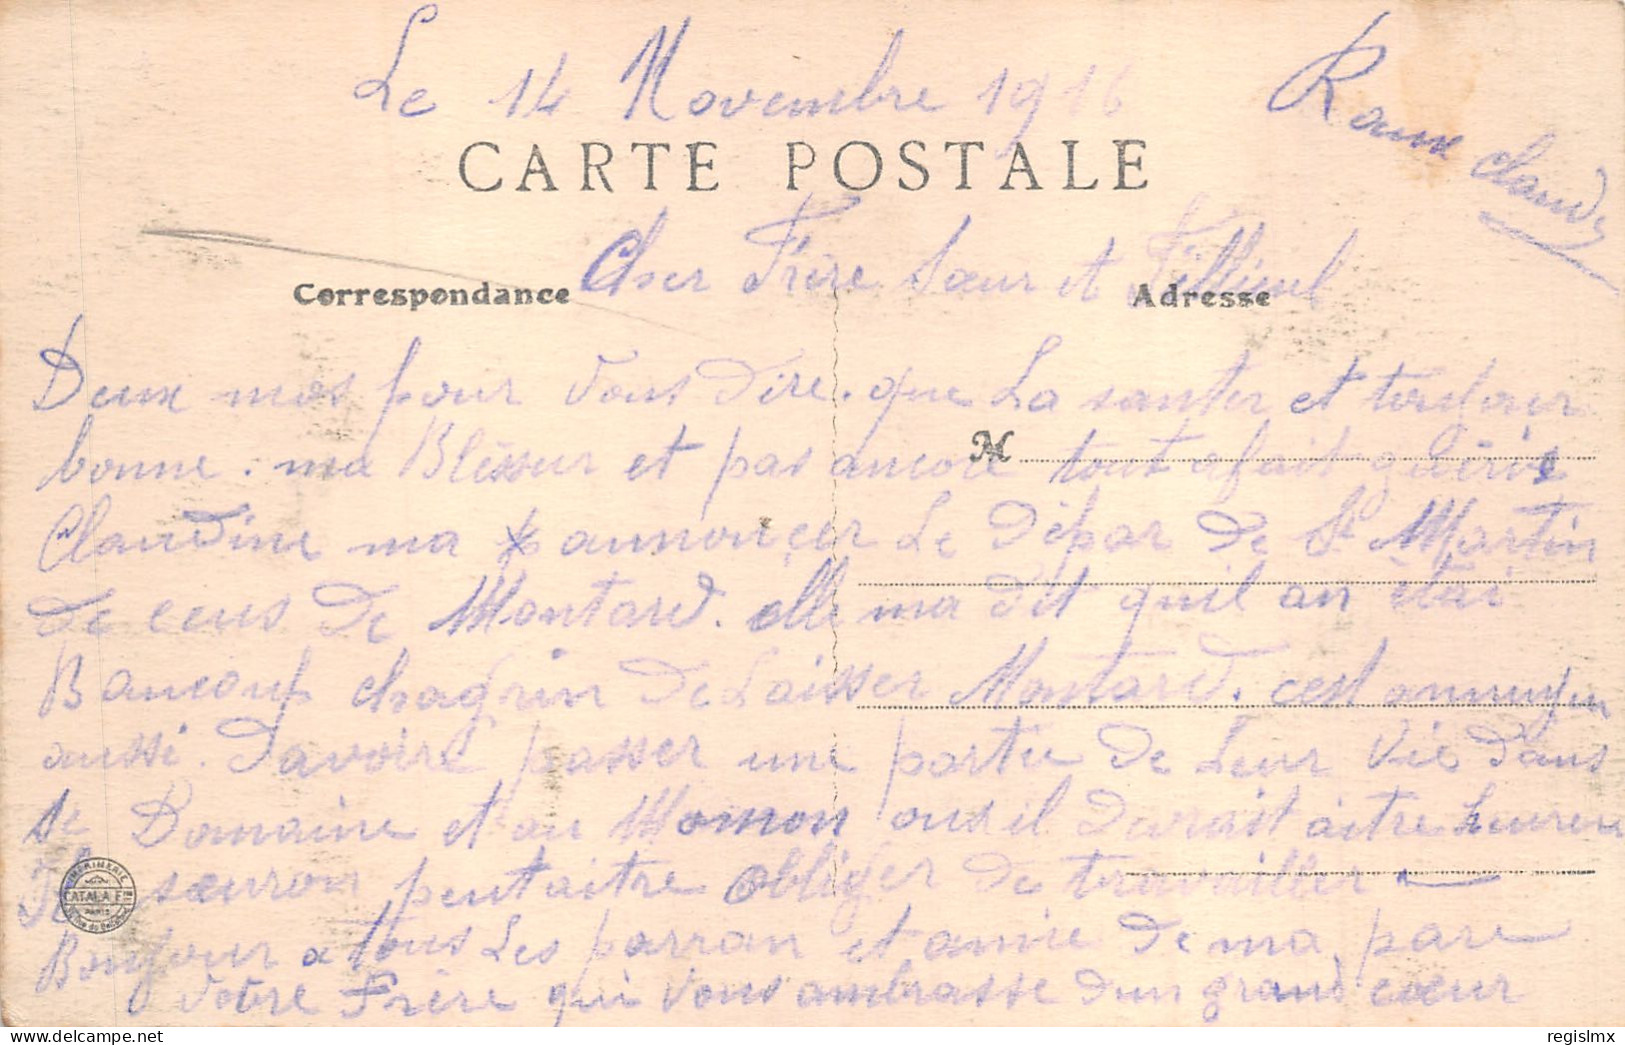 Le 14 Novembre 1916
Roux Claude
CARTE POSTALE
Cher Frère Sœur et Filleul
Correspondance
Adresse
Deux mos pour Vous Dire. que La santer et toujour
bonne. ma Blèssur et pas ancore tout afait guèrie
M
Claudine ma annonçer Le Dèpar De St Martin
De ceus De Montard. elle ma Dit qu'il an ètai
Baucoup chagrin De Laisser Montard. cest annuyeu
aussi. Davoire passer une partie De Leur Vie Dans
se Domaine et au Momon ous il Devrait aitre heureu
Il seuron peutaitre obliger De travailler
Bonjour a tous Les parran et amie De ma pare
Votre Frère qui Vous ambrasse Dun grand cœur
IMPRIMERIE
CATALA F
PARIS
regislmx
delcampe.net